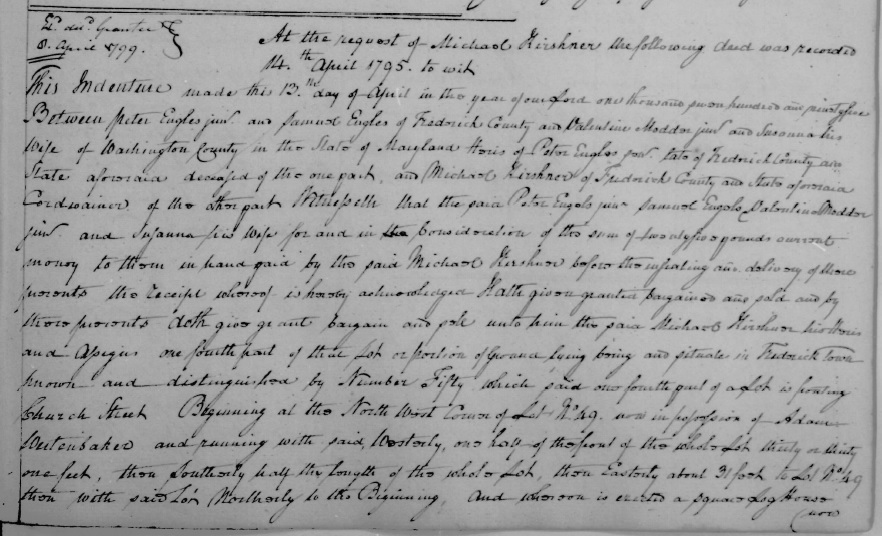 Ex. del. Grantee
8. April 1799.
At the request of Michael Kirshner the following deed was recorded
14.th April 1795. to wit
This Indenture made this 13.th day of April in the year of our Lord one thousand seven hundred and ninety five
Between Peter Engles junr. and Samuel Engles of Frederick County and Valentine Modder junr. and Susanna his
Wife of Washington County in the State of Maryland Heirs of Peter Engles senr. late of Frederick County and
State aforesaid deceased of the one part, and Michael Kirshner of Frederick County and State aforesaid
Cordwainer of the other part Witnesseth that the said Peter Engels junr. Samuel Engels, Valentine Modder
junr. and Susanna his Wife for and in Consideration of the sum of twenty five pounds current
money to them in hand paid by the said Michael Kershner before the ensealing and delivery of these
presents the receipt whereof is hereby acknowledged Hath given granted bargained and sold and by
these presents doth give grant bargain and sell unto him the said Michael Kirshner his Heirs
and Assigns one fourth part of that Lot or portion of Ground lying being and situate in Frederick Town
known and distinguished by Number Fifty which said one fourth part of a Lot is fronting
Church Street Beginning at the North West Corner of Lot No. 49. now in possession of Adam
and running with said Westerly, one half of the front of the whole Lot thirty or thirty
one feet, then Southerly half the Length of the whole Lot, then Easterly about 31 feet to Lot No. 49
then with said Lot Northerly to the Beginning, and whereon is erected a square Log House
now